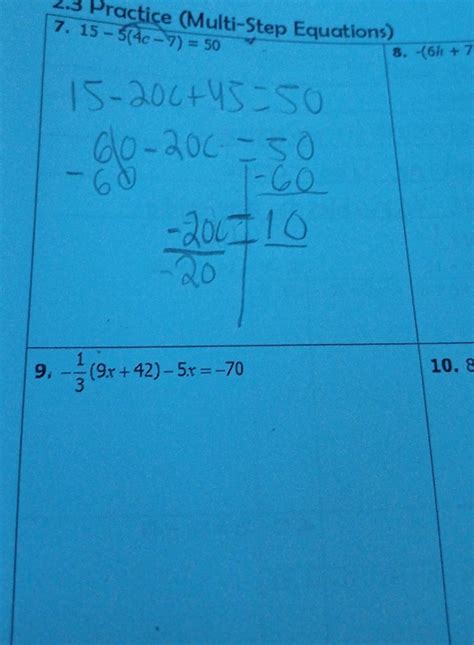 2.3 Practice (Multi-Step Equations)
7. 15 – 5(4c – 7) = 50
8. -(6h + 7
15-20c+45=50
60-20c=50
-60 -60
-20c=10
-20
9. -1/3(9x + 42) – 5x = –70
10. 8